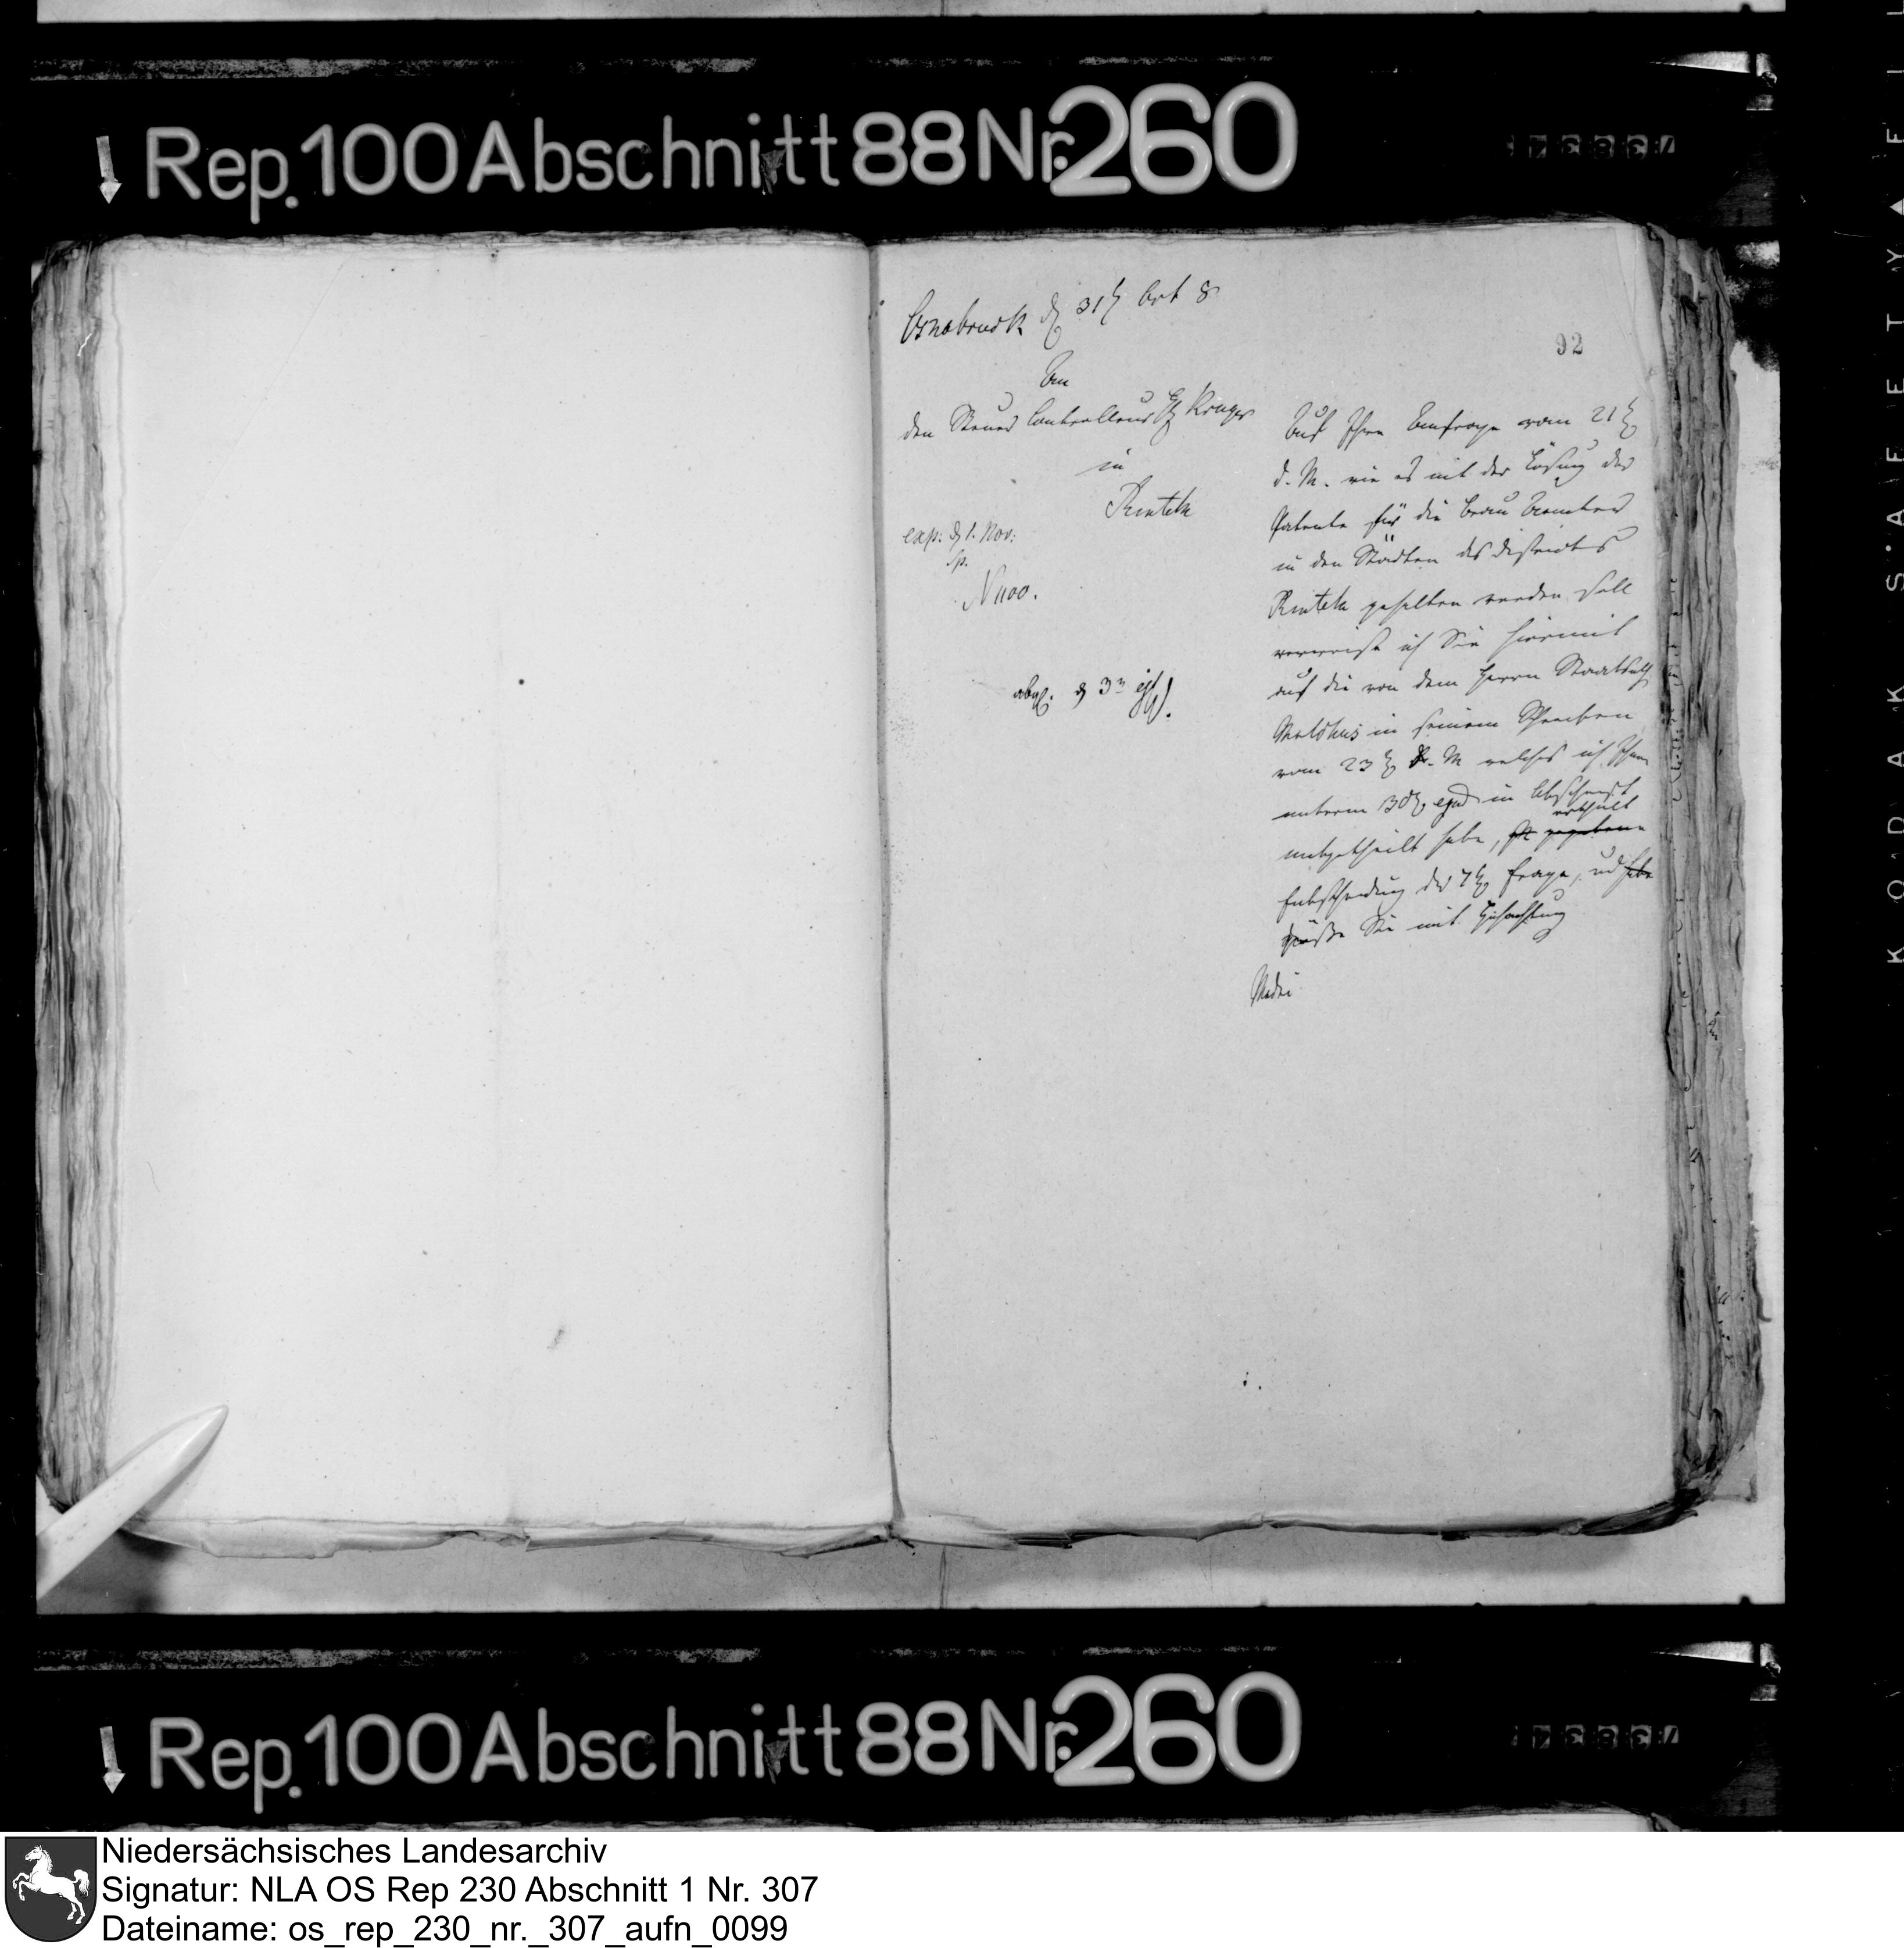 Rep. 100 Abschnitt 88 Nr. 260
Osnabruck d 31t Oct 8
92
An
den Steuer Controlleur H Kruger
in
Rinteln
exp: d 1. Nov:
Sp.
N 1100.
abgs. d 3n ejsd.
Auf Ihre Anfrage vom 21t
d. M. wie es mit der Lösung der
Patente für die Brau Beamten
in den Städten des Districtes
Rinteln gehalten werden soll
verweise ich Sie hiermit
auf die von dem Herrn Staatsrath
Malchus in seinem Schreiben
vom 23t d. M welches ich Ihnen
unterm 30t ejusd in Abschrift
mitgetheilt habe, ertheilt
Entscheidung der 7t Frage, und habe
grüße Sie mit Hochachtung
Rep. 100 Abschnitt 88 Nr. 260
KODAK SAFETY
Niedersächsisches Landesarchiv
Signatur: NLA OS Rep 230 Abschnitt 1 Nr. 307
Dateiname: os_rep_230_nr._307_aufn_0099